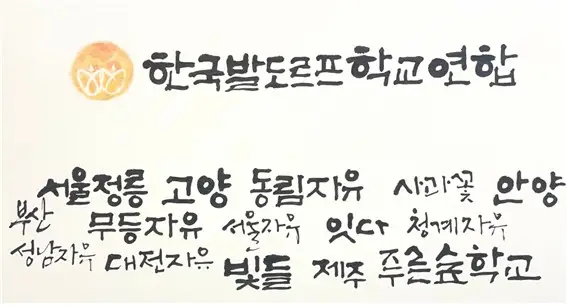 한국발도르프학교연합
서울정릉 고양 동림자유 사과꽃 안양
부산 무등자유 서울자유 잇다 청계자유
성남자유 대전자유 빛들 제주 푸른숲학교